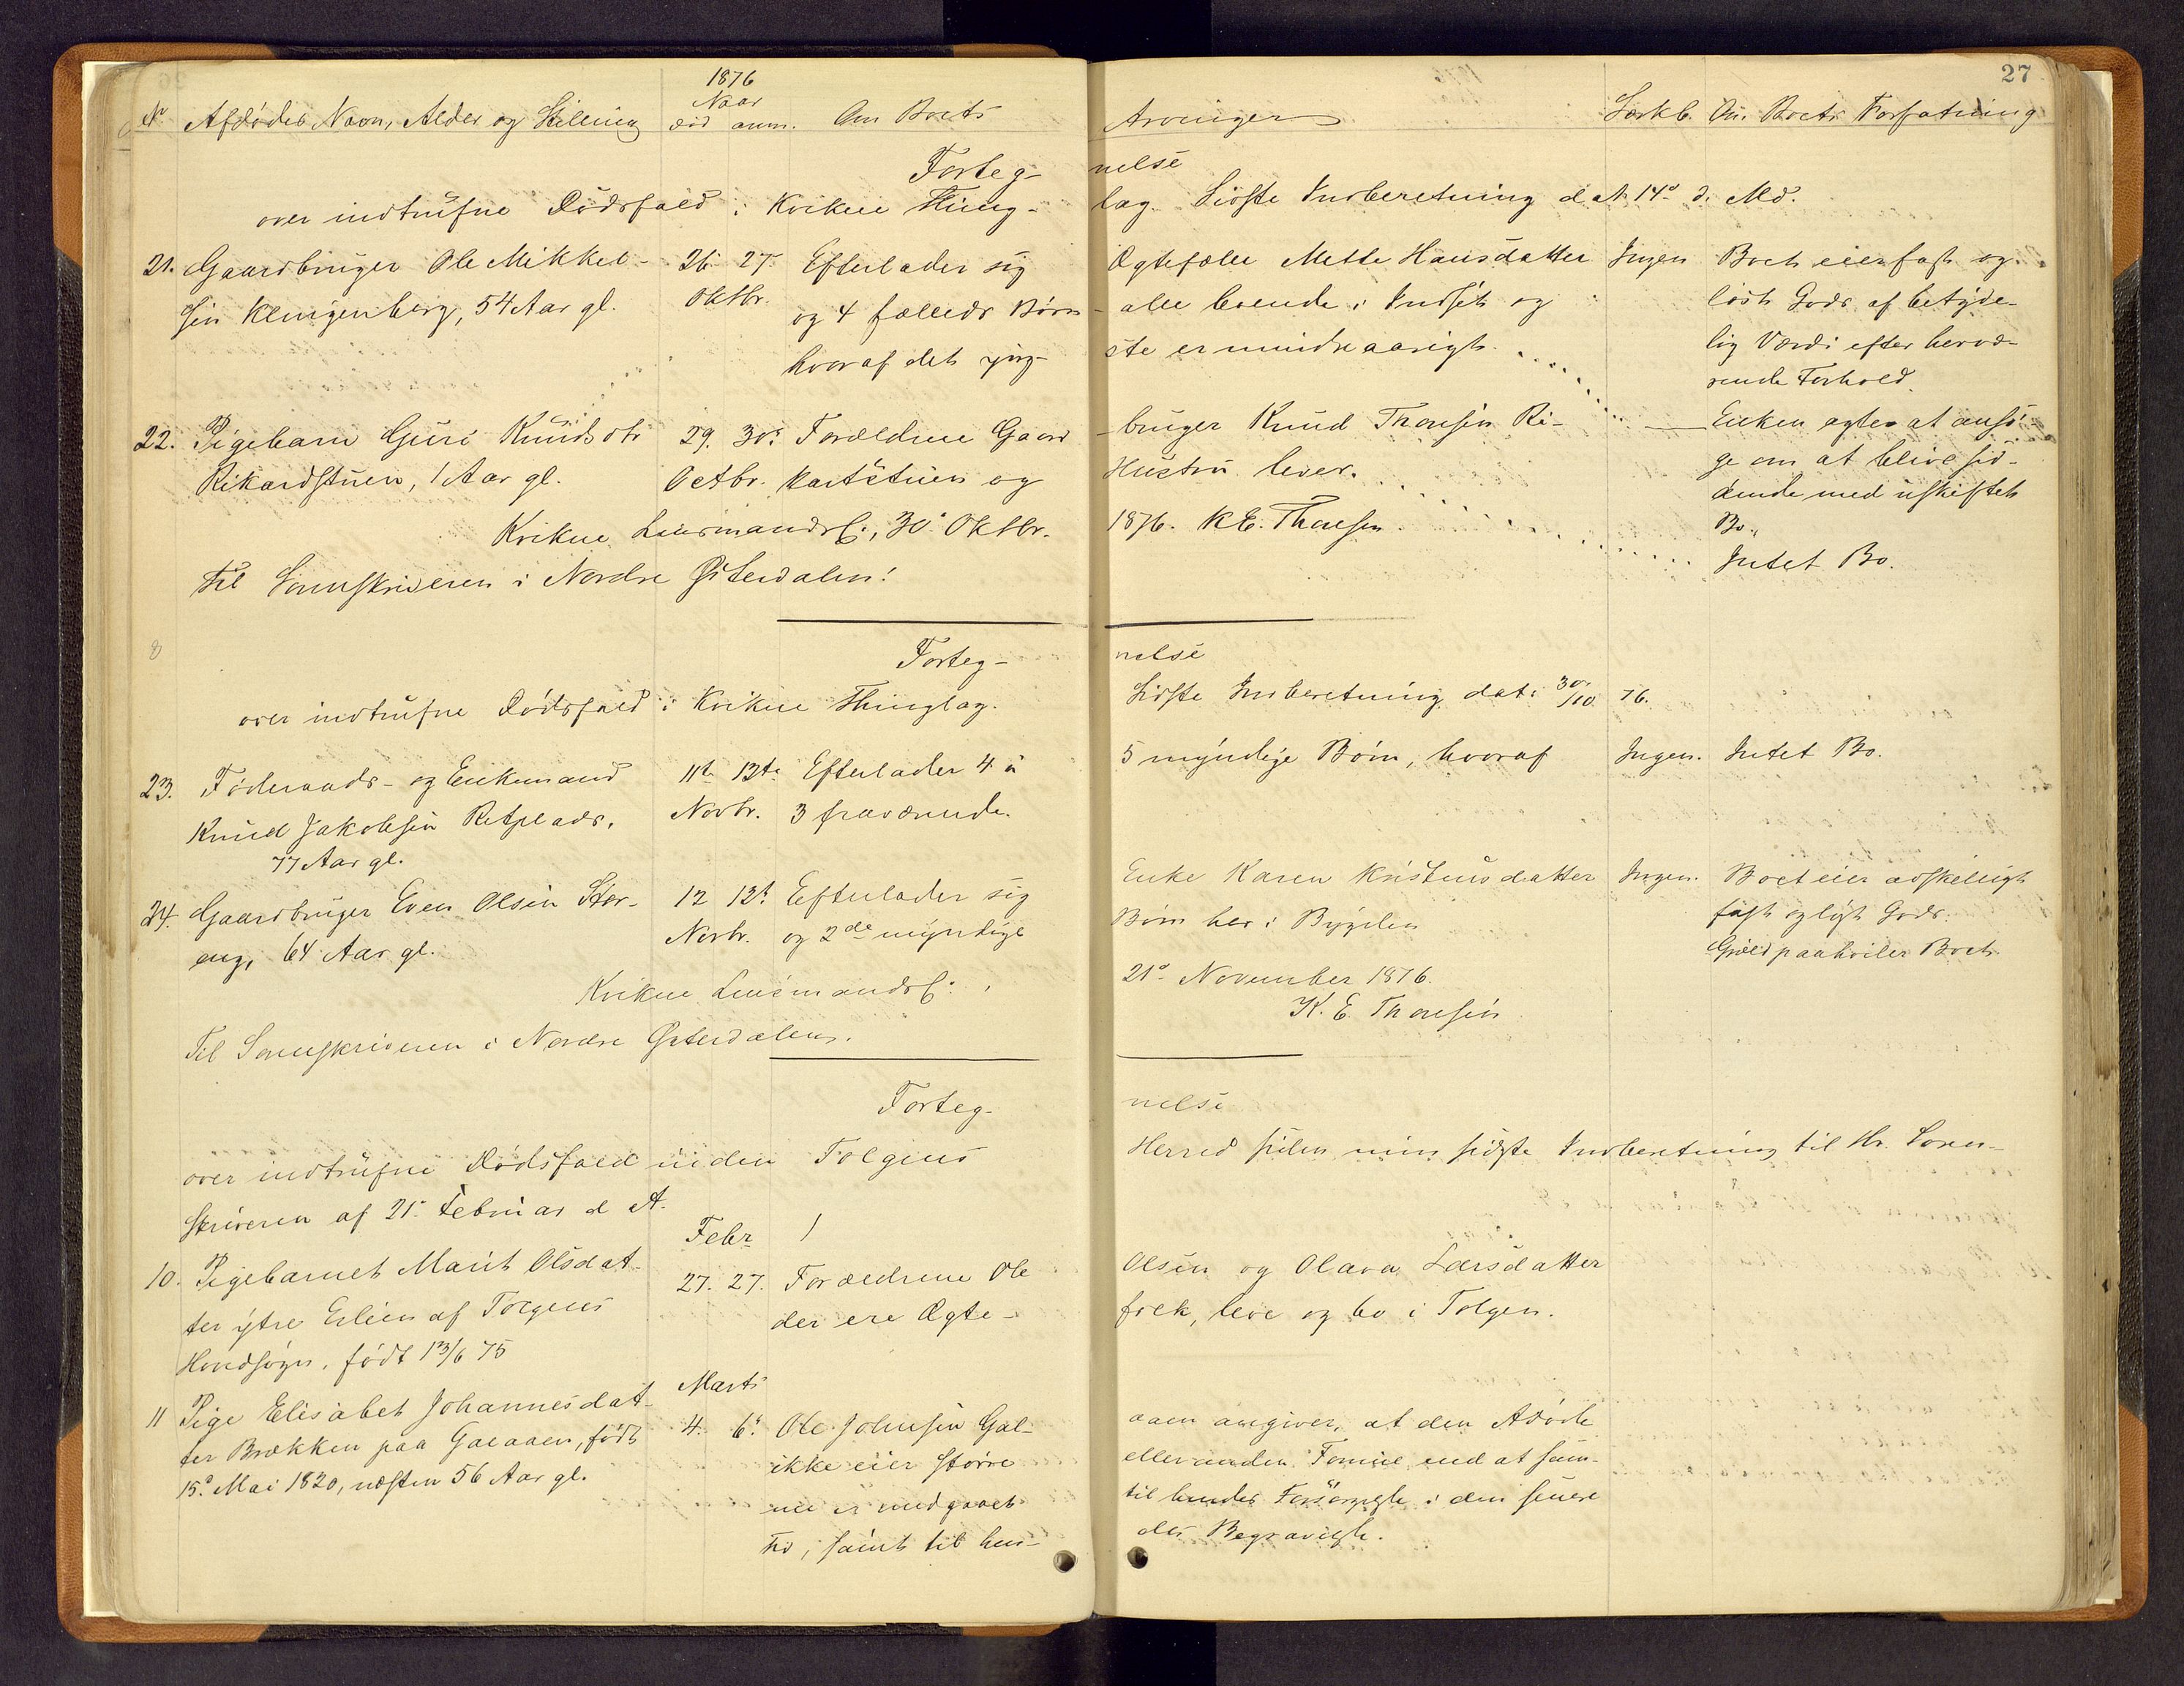 1876
27
No Afdødes Navn, Alder og Stilling
Naar
død anm. Om Boets
Arvinger
Særkb. Om Boets Forfatning
Forteg-
nelse
over indtrufne Dødsfald i Kvikne Thing-
lag. Sidste Indberetning dat 14de d. Md.
21. Gaardbruger Ole Mikkel- 26. 27. Efterlader sig
Ægtefælle Mette Hansdatter Ingen Boet eier fast og
sen Klingenberg, 54 Aar gl. Oktbr. og 4 fælleds Børn
alle boende i Indset og løst Gods af betyde-
hvoraf det yng-
ste er mindreaarigt. lig Værdi efter hervæ-
rende Forhold.
22. Pigebarn Guri Knudsdtr 29. 30. Forældrene Gaard
bruger Knud Thoresen Ri- Enken agter at ansø-
Rikardstuen, 1 Aar gl. Octbr. kardstuen og
Hustru lever. ge om at blive sid-
dende med uskiftet
Kvikne Lensmandsb., 30 Oktbr.
1876. K E. Thoresen Bo.
Intet Bo.
Til Sorenskriveren i Nordre Østerdalen!
8
Forteg-
nelse
over indtrufne Dødsfald i Kvikne Thinglag.
Sidste Indberetning dat. 30/10 76.
23. Føderaads- og Enkemand 11te 13te Efterlader 4 à
5 myndige Børn, hvoraf Ingen. Intet Bo.
Knud Jakobsen Novbr. 3 fraværende.
77 Aar gl.
24. Gaardbruger Even Olsen Stor- 12 13t Efterlader sig
Enke Karen Kristensdatter Ingen. Boet eier adskilligt
eng, 64 Aar gl. Novbr. og 2de myndige
Børn her i Bygden fast og løst Gods.
Gjæld paahviler Boet.
Kvikne Lensmandsb.,
21de November 1876.
K. E. Thoresen
Til Sorenskriveren i Nordre Østerdalen.
Forteg-
nelse
over indtrufne Dødsfald inden Tolgens
Herred siden min sidste Indberetning til Hr. Soren-
skriveren af 21. Februar d A.
Febr
10. Pigebarnet Marit Olsdat- 27. 27. Forældrene Ole
Olsen og Olava Larsdatter
ter ytre Erlien af Tolgens der ere Ægte-
folk, leve og bo i Tolgen.
Hovedsogn, født 13/6 75
Marts
11 Pige Elisabet Johannesdat- 4. 6. Ole Johnsen Gal-
aaen angiver, at den Afdøde
ter Brækken paa Galaaen, født ikke eier større
eller anden Formue end at sam-
15de Mai 1820, næsten 56 Aar gl. me er medgaaet
til hendes Forsørgelse i den senere
Tid, samt til hen-
des Begravelse.